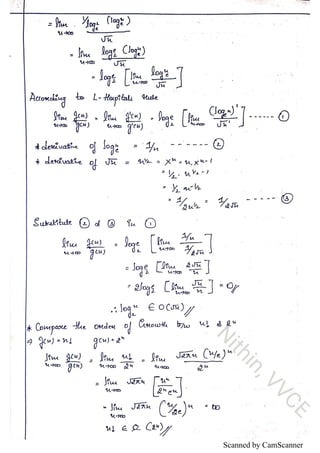 = lim 1/log₂ᵉ (logₑⁿ) / √n
n→∞
= lim log₂ᵉ (logₑⁿ) / √n
n→∞
= log₂ᵉ [ lim n→∞ logₑⁿ / √n ]
According to L-Hospitals rule
lim n→∞ g(n)/g(n) = lim n→∞ g'(n)/g'(n) = log₂ᵉ [ lim n→∞ (logₑⁿ)' / √n' ] ----- ①
* derivative of logₑⁿ = 1/n ----- ②
* derivative of √n = n^1/2 = xⁿ = n.x^n-1
= 1/2 . n^1/2-1
= 1/2 n^-1/2
= 1/2n^1/2 = 1/2√n ----- ③
Substitute ② & ③ in ①
lim n→∞ g(n)/g(n) = log₂ᵉ [ lim n→∞ 1/n / 1/2√n ]
= log₂ᵉ [ lim n→∞ 2√n / n ]
= 2log₂ᵉ [ lim n→∞ √n / n ] = 0//
∴ log₂ⁿ ∈ O(√n)//
* Compare the orders of Growth b/w n! & 2ⁿ
⇒ g(n) = n! g(n) = 2ⁿ
lim n→∞ g(n)/g(n) = lim n→∞ n!/2ⁿ = lim n→∞ √2πn (n/e)ⁿ / 2ⁿ
= lim n→∞ √2πn [ nⁿ / 2ⁿeⁿ ]
= lim n→∞ √2πn (n/2e)ⁿ = ∞
n! ∈ Ω (2ⁿ)//
Nithin, VVCE
Scanned by CamScanner